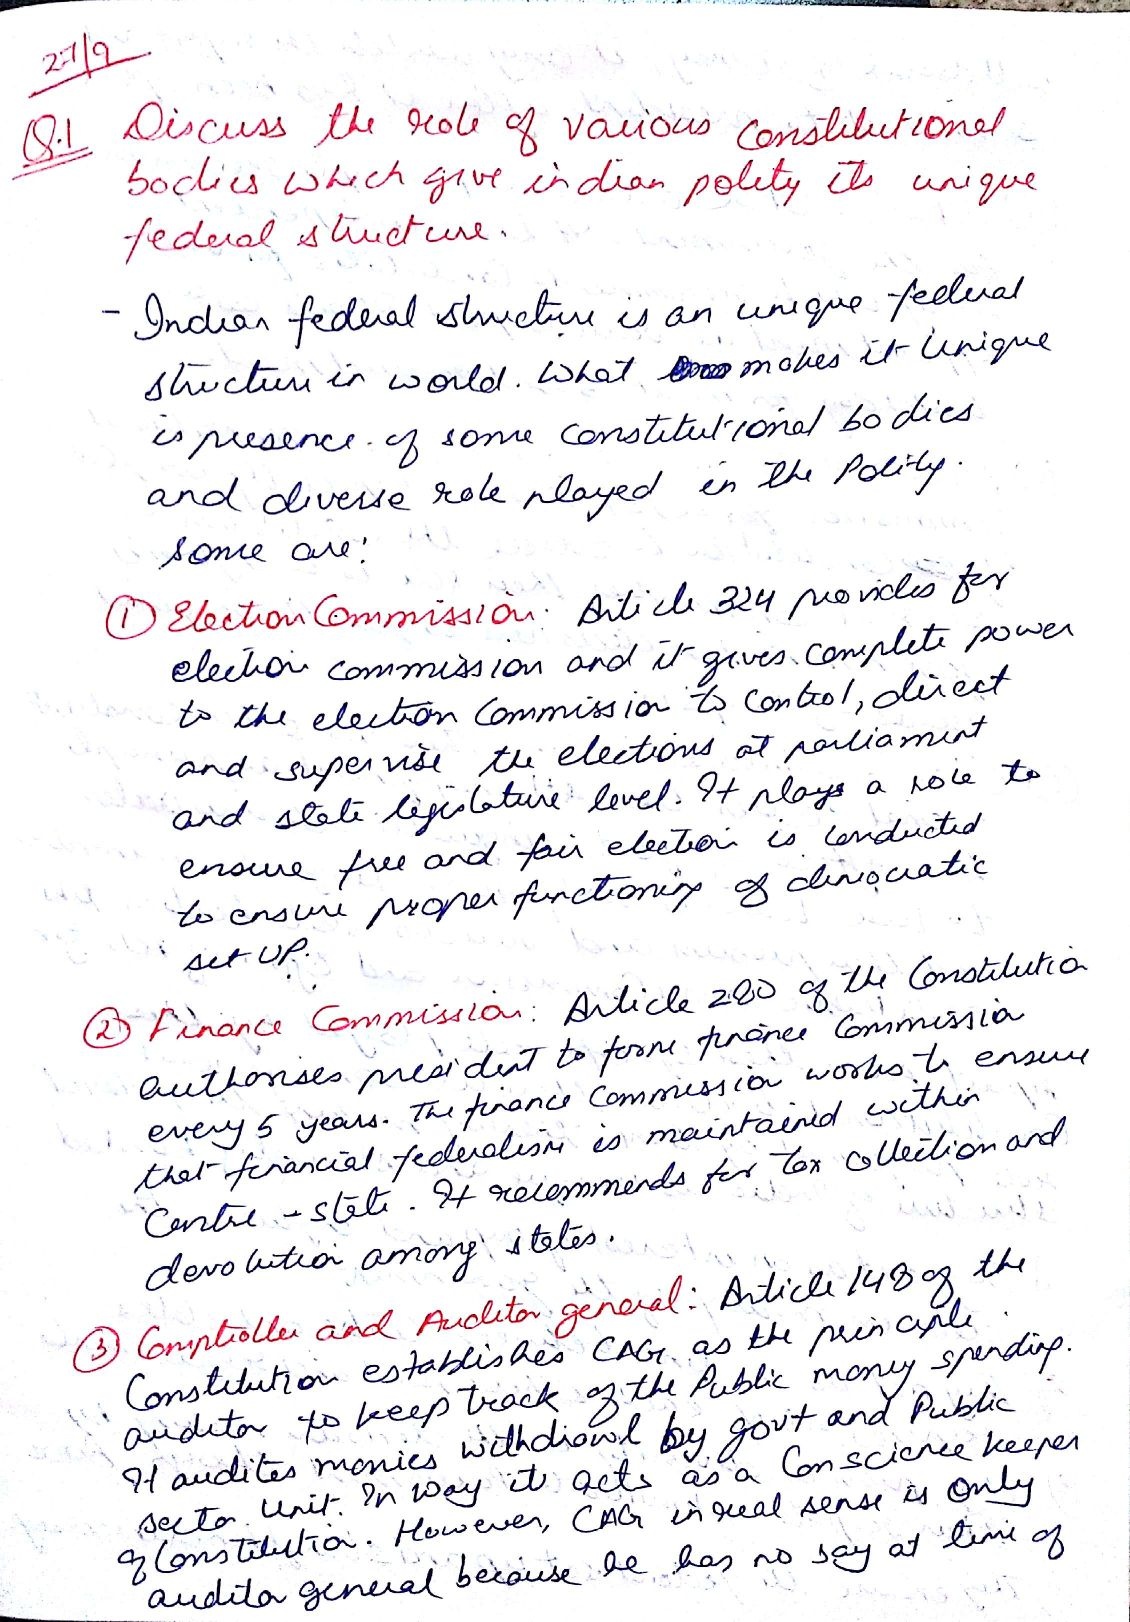 27/9
Q.1 Discuss the role of various constitutional
bodies which give indian polity its unique
federal structure.
- Indian federal structure is an unique federal
structure in world. What makes it unique
is presence of some constitutional bodies
and diverse role played in the Polity.
Some are:
① Election Commission: Article 324 provides for
election commission and it gives complete power
to the election Commission to control, direct
and supervise the elections at parliament
and state legislature level. It plays a role to
ensure free and fair election is conducted
to ensure proper functioning of democratic
set UP.
② Finance Commission: Article 280 of the Constitution
authorises president to form finance Commission
every 5 years. The finance Commission works to ensure
that financial federalism is maintained within
Centre - state. It recommends for Tax collection and
devolution among states.
③ Comptroller and Auditor general: Article 148 of the
Constitution establishes CAG as the principle
auditor to keep track of the Public money spending.
It audites monies withdrawl by govt and Public
sector Unit. In way it acts as a Conscience keeper
of Constitution. However, CAG in real sense is only
auditor general because he has no say at time of